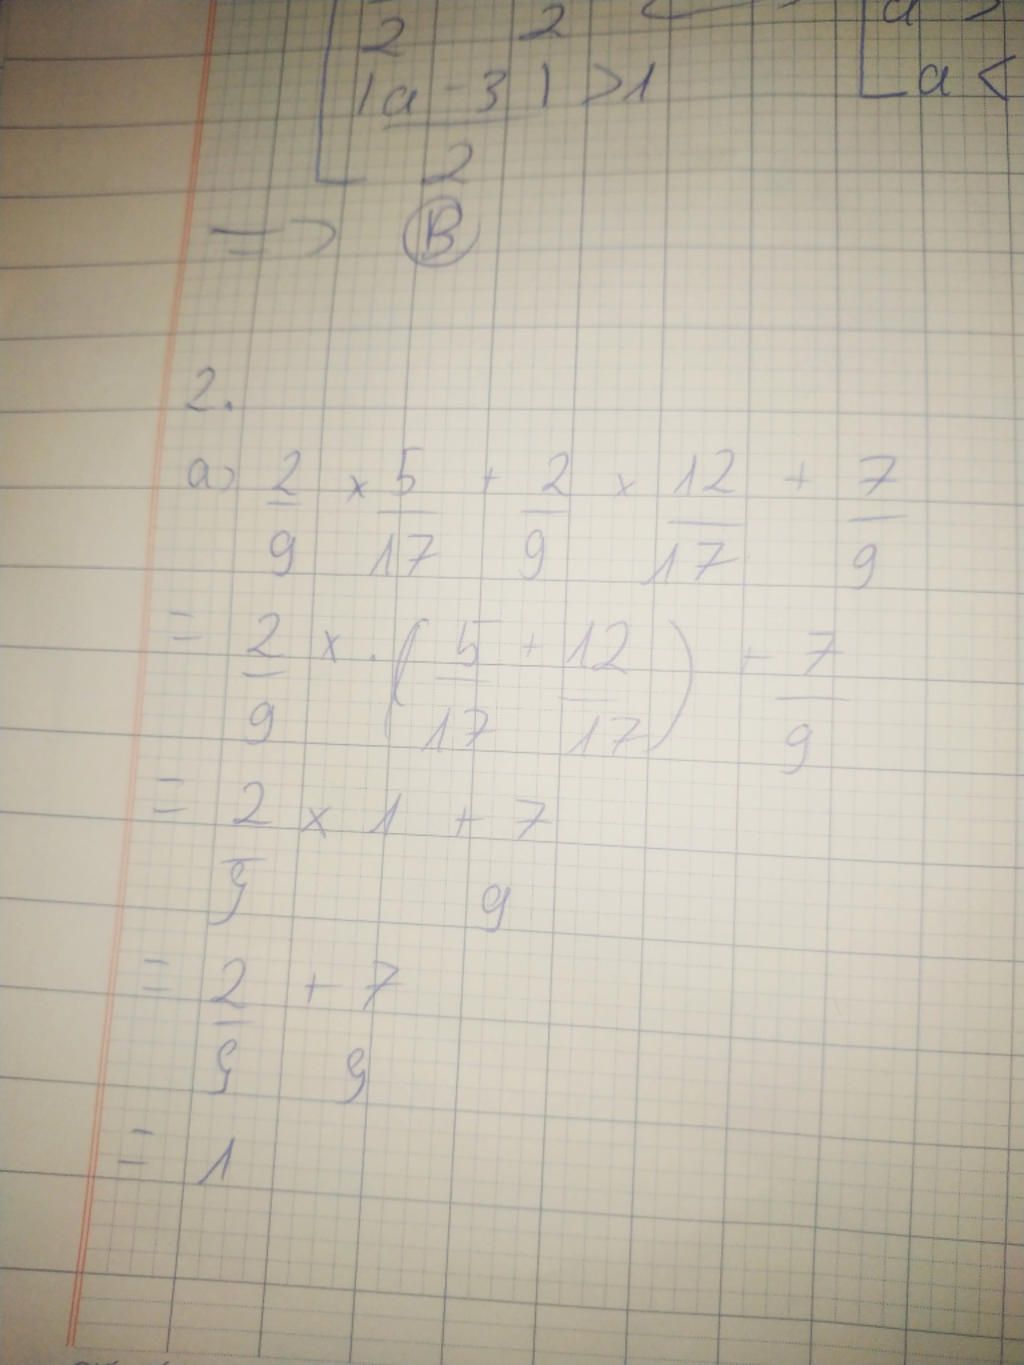 2 2
|a-3|>1
2
a >
a <
=> B
2.
a) 2/9 x 5/17 + 2/9 x 12/17 + 7/9
= 2/9 x . (5/17 + 12/17) + 7/9
= 2/9 x 1 + 7 9
= 2/9 + 7 9
= 1